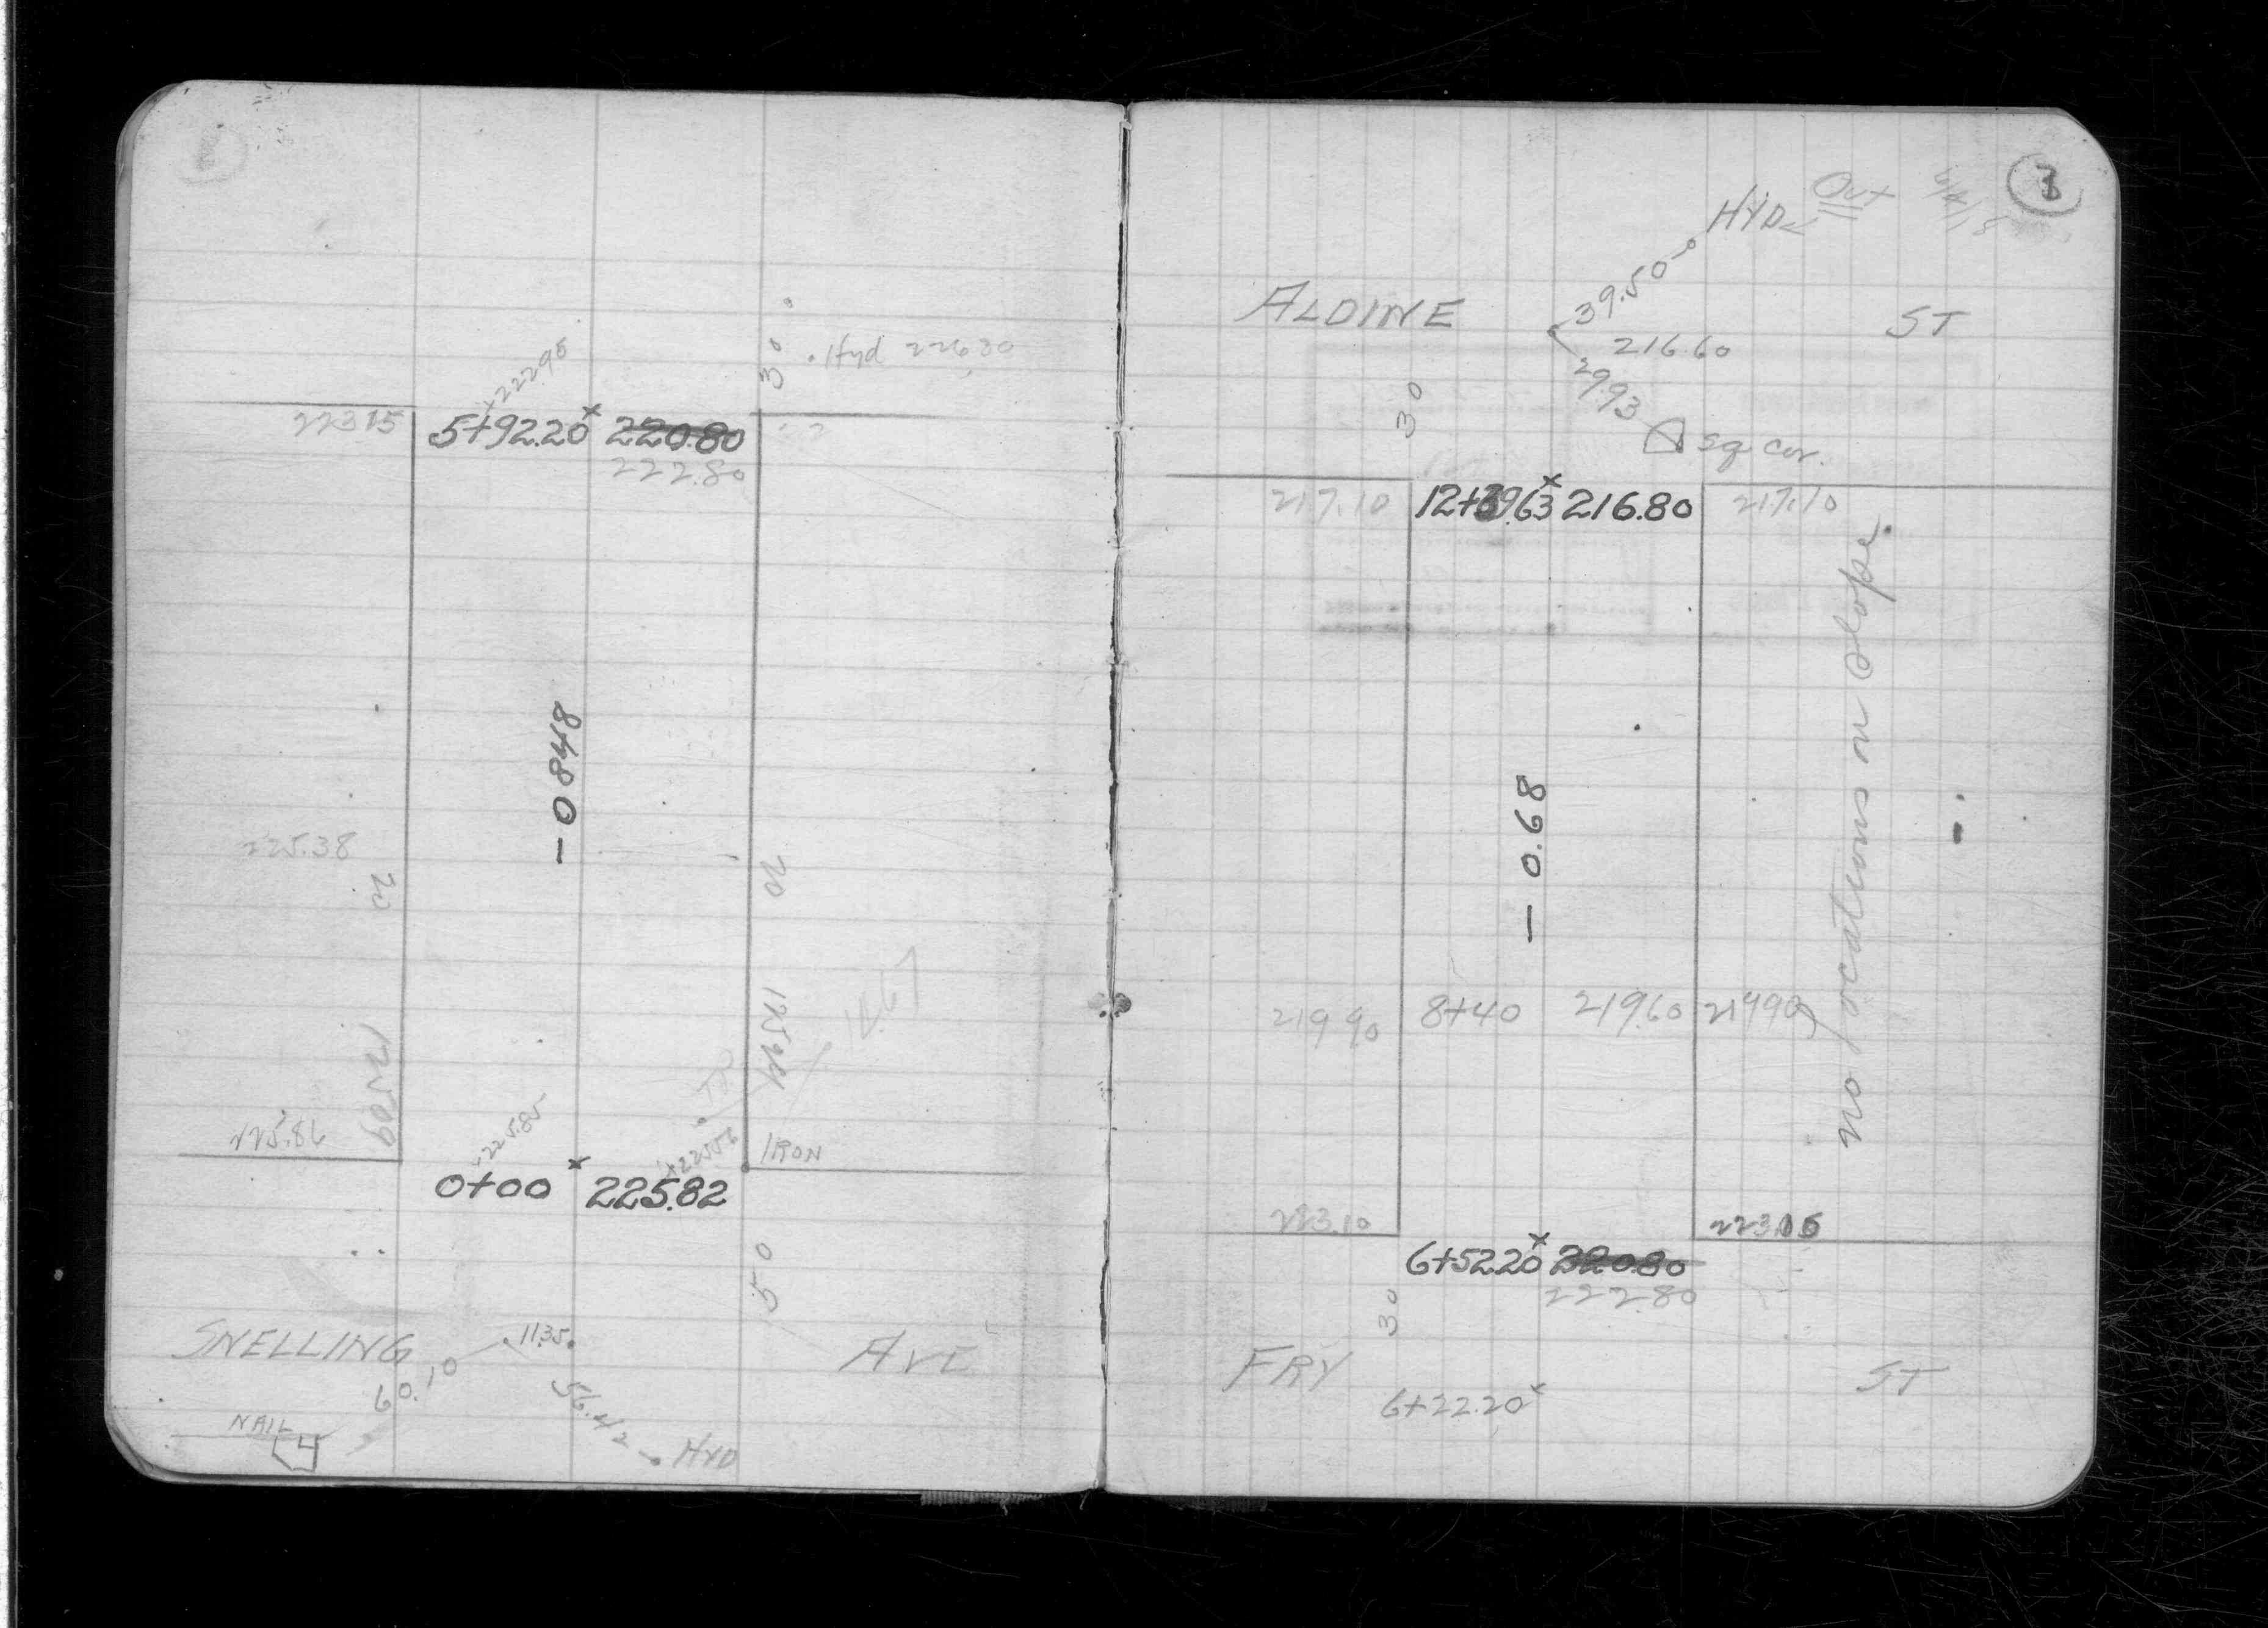 Hyd 226.80
30
+222.98
223.15
5+92.20 220.80
222.80
-0.848
225.38
20
20
125.94
14.67
125.09
225.85
225.86
IRON
0+00 225.82
50
SNELLING AVE
11.35
60.10
56.42
NAIL
HYD
3
Out
HYD
39.50
ALDINE ST
216.60
29.93
30
sq cor.
217.10 216.80 217.10
-0.68
no locations on slope.
219.90 8+40 219.60 219.90
223.10 223.05
6+52.20 220.80
222.80
30
FRY ST
6+22.20